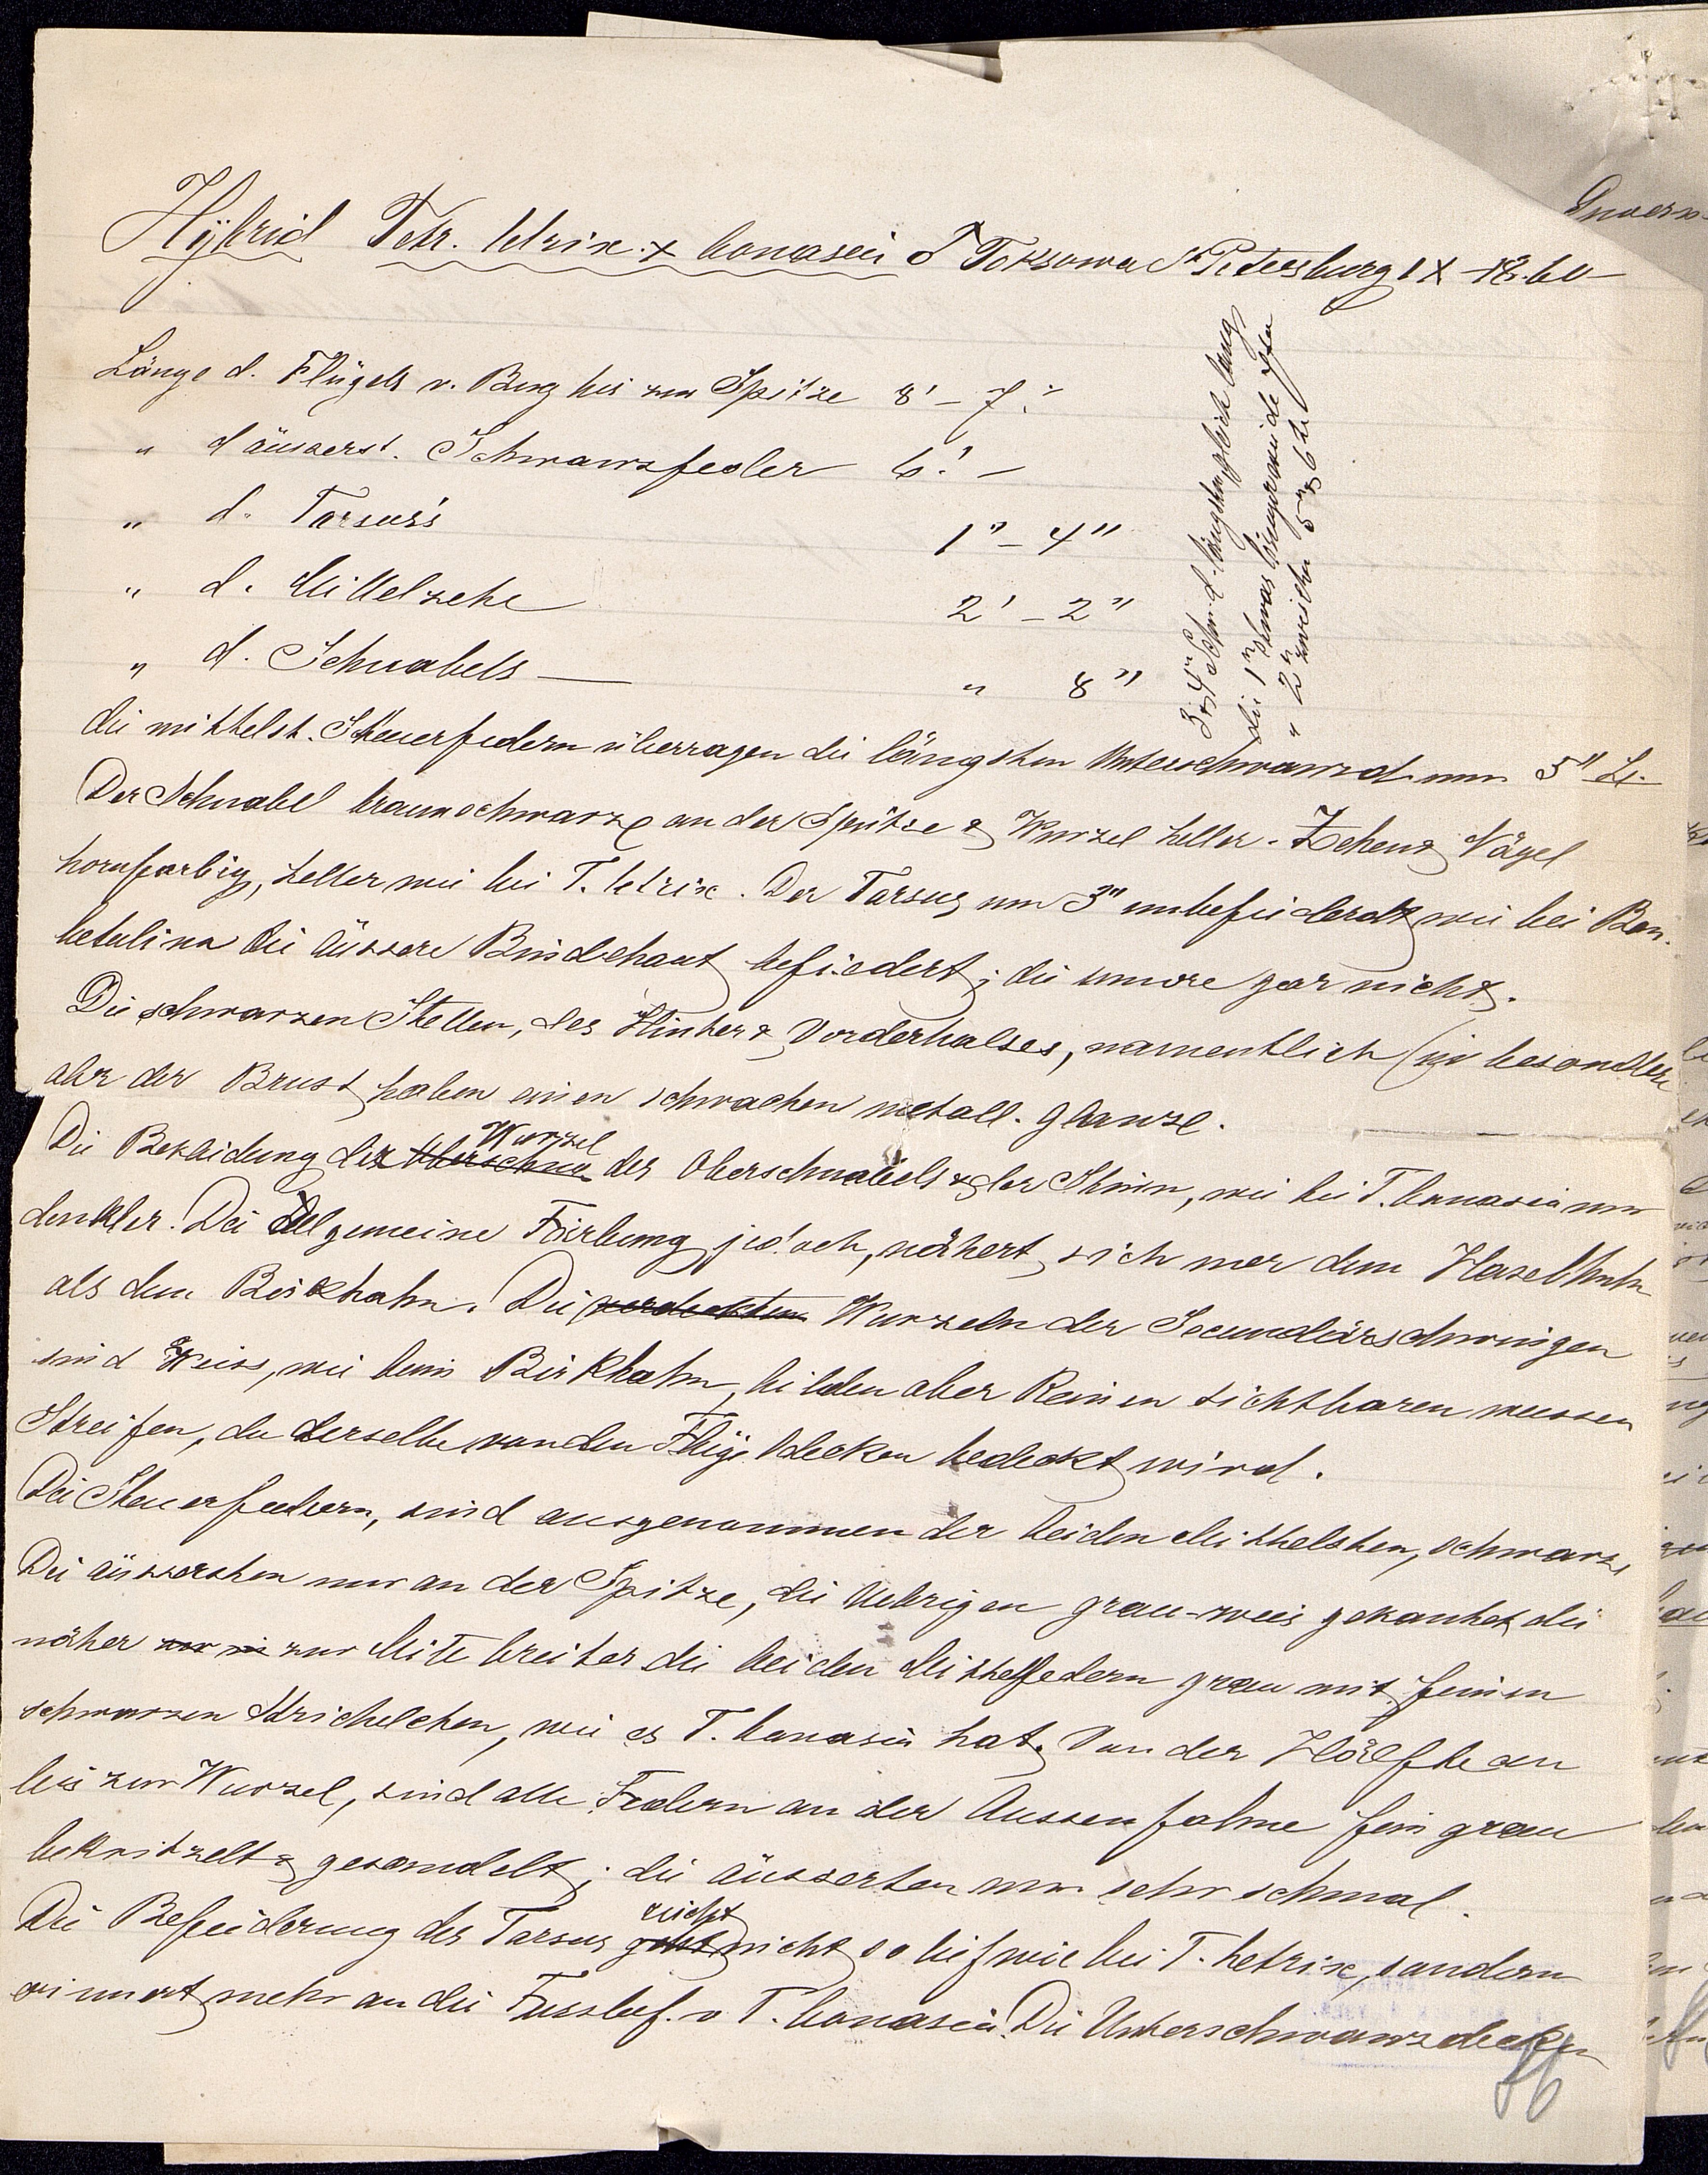 Hÿbrid Tetr. tetrix × bonasia ♂ Toksowa St Petersburg IX – 18.60
Länge d. Flügels v. Bug bis zur Spitze 8' – 7."
" d äusserst. Schwanzfeder 6.' –
" d. Tarsus's 1" – 4"
" d. Mittelzehe 2' – 2"
" d. Schnabels — " 8"
3 & 4te Schw. d. längsten, gleich lang
die 1te etwas länger wie die 7te
" 2te zwischen 5te & 6te
die mittelst. Steuerfedern überragen die längsten Unterschwanzd. um 5" L.
Der Schnabel braunschwarz an der Spitze & Wurzel heller. Zehen & Nägel
hornfarbig, heller wie bei T. tetrix. Der Tarsus um 3" unbefiedert, wie bei Bon.
betulina die äussere Bindehaut befiedert; die innere gar nicht.
Die schwarzen Stellen, des Hinter & Vorderhalses, namentlich (in besondere
aber der Brust, haben einen schwachen metall. Glanze.
Die Bekleidung der Oberschna Wurzel des Oberschnabels & der Stirn, wie bei T. bonasia nur
dunkler. Die Allgemeine Färbung jedoch, nähert sich mer dem Haselhuhn
als dem Birkhahn. Die verdeckten Wurzeln der Secundärschwingen
sind Weiss, wie beim Birkhahn, bilden aber keinen sichtbaren weissen
Streifen, da derselbe von den Flügeldecken bedeckt wird.
Die Steuerfedern, sind ausgenommen der beiden Mittelsten, schwarz,
Die äussersten nur an der Spitze, die Uebrigen grau-weis gekantet, die
näher zur Mitte breiter die beiden Mittelfedern grau mit feinen
schwarzen Strichelchen, wie es T. bonasia hat. Von der Hälfte an
bis zur Wurzel, sind alle Federn an der Aussenfahne fein grau
bekritzelt & gesandelt; die äusserten nur sehr schmal.
Die Befiederung des Tarsus geht reicht nicht so tief wie bei T. tetrix, sondern
erinnert mehr an die Fussbef. v T. bonasia. Die Unterschwanzdecken